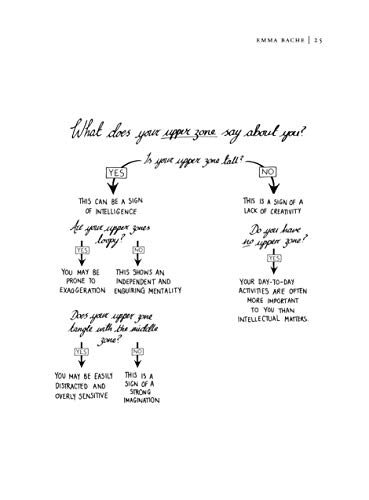 EMMA BACHE | 25
What does your upper zone say about you?
Is your upper zone tall?
YES
NO
THIS CAN BE A SIGN
OF INTELLIGENCE
THIS IS A SIGN OF A
LACK OF CREATIVITY
Are your upper zones
loopy?
YES
NO
Do you have
no upper zone?
YES
YOU MAY BE
PRONE TO
EXAGGERATION
THIS SHOWS AN
INDEPENDENT AND
ENQUIRING MENTALITY
YOUR DAY-TO-DAY
ACTIVITIES ARE OFTEN
MORE IMPORTANT
TO YOU THAN
INTELLECTUAL MATTERS.
Does your upper zone
tangle with the middle
zone?
YES
NO
YOU MAY BE EASILY
DISTRACTED AND
OVERLY SENSITIVE
THIS IS A
SIGN OF A
STRONG
IMAGINATION